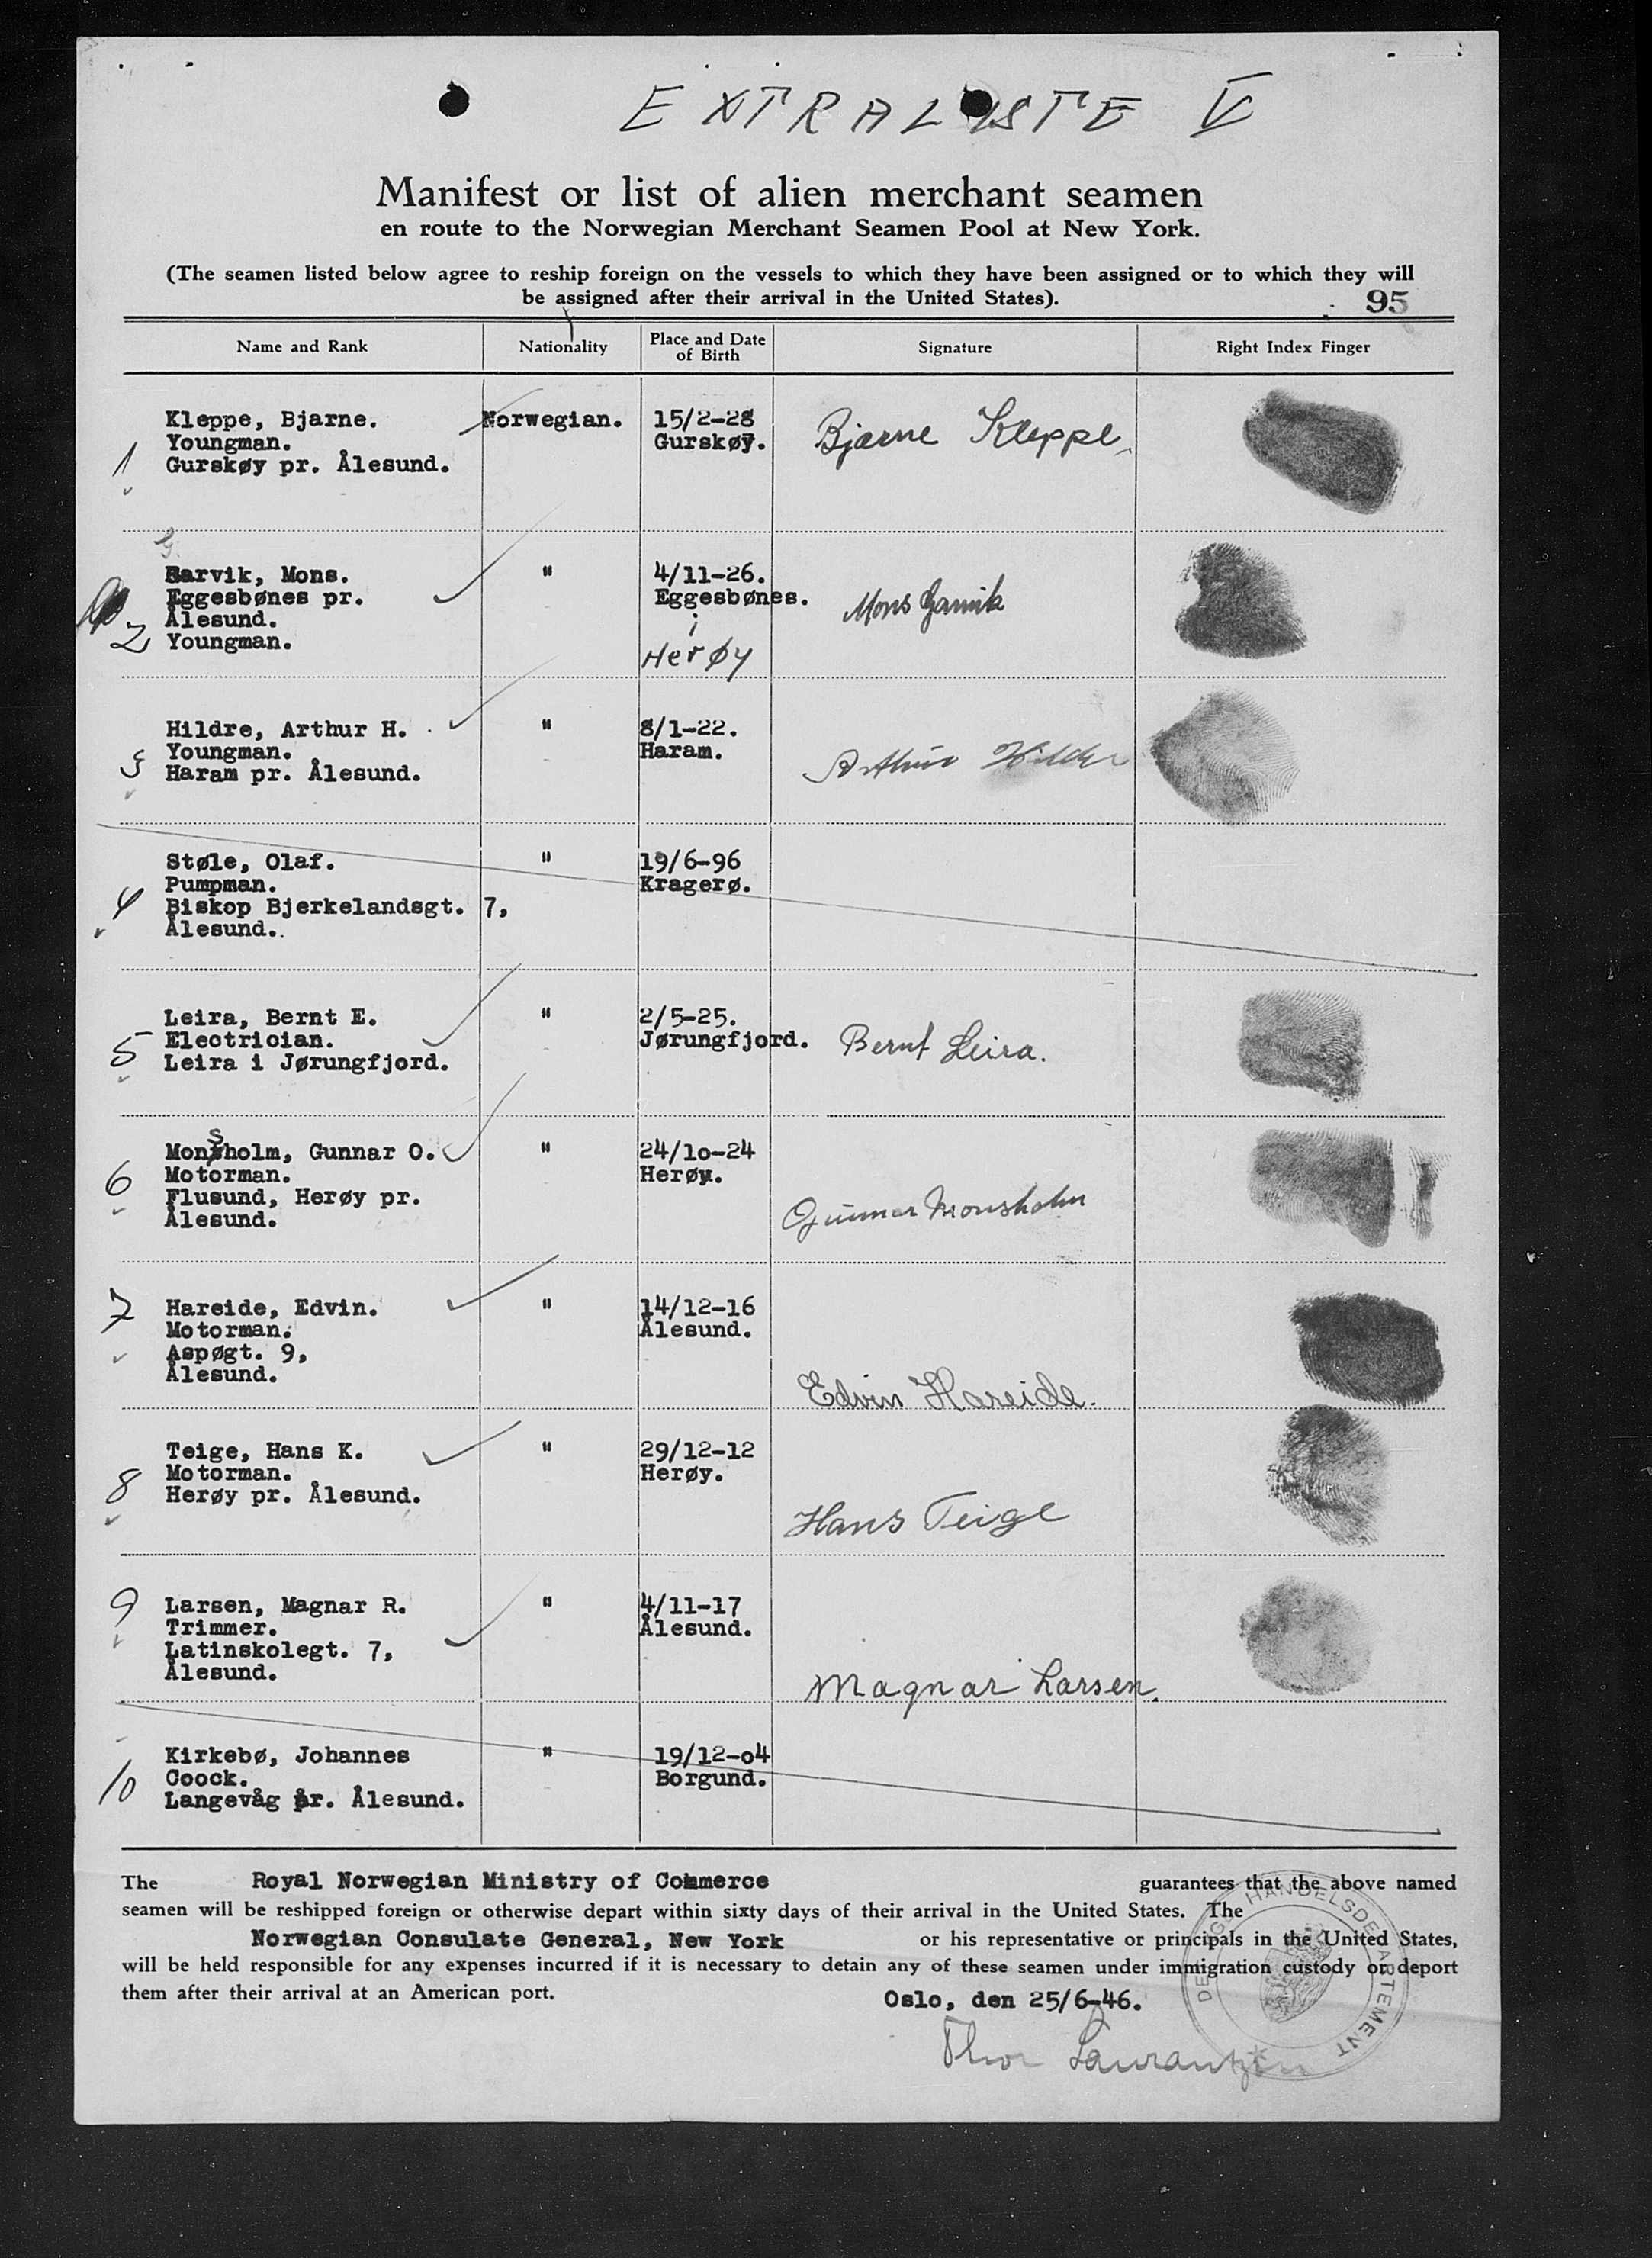 EXTRALISTE V
Manifest or list of alien merchant seamen
en route to the Norwegian Merchant Seamen Pool at New York.
(The seamen listed below agree to reship foreign on the vessels to which they have been assigned or to which they will
be assigned after their arrival in the United States).
95
Name and Rank Nationality Place and Date of Birth Signature Right Index Finger
Kleppe, Bjarne. Norwegian. 15/2-28
Youngman. Gurskøy. Bjarne Kleppe.
1 Gurskøy pr. Ålesund.
G.
Garvik, Mons. " 4/11-26.
Eggesbønes pr. Eggesbønes. Mons Garvik
Ålesund. i
2 Youngman. Herøy
Hildre, Arthur H. " 8/1-22.
Youngman. Haram. Arthur Hildre
3 Haram pr. Ålesund.
Støle, Olaf. " 19/6-96
Pumpman. Kragerø.
4 Biskop Bjerkelandsgt. 7,
Ålesund.
Leira, Bernt E. " 2/5-25.
Electrician. Jørungfjord. Bernt Leira.
5 Leira i Jørungfjord.
Monsholm, Gunnar O. " 24/10-24
Motorman. Herøy.
6 Flusund, Herøy pr.
Ålesund. Gunnar Monsholm
7 Hareide, Edvin. " 14/12-16
Motorman. Ålesund.
Aspøgt. 9,
Ålesund. Edvin Hareide.
Teige, Hans K. " 29/12-12
Motorman. Herøy.
8 Herøy pr. Ålesund. Hans Teige
9 Larsen, Magnar R. " 4/11-17
Trimmer. Ålesund.
Latinskolegt. 7,
Ålesund. Magnar Larsen.
Kirkebø, Johannes " 19/12-04
Coock. Borgund.
10 Langevåg pr. Ålesund.
The Royal Norwegian Ministry of Commerce guarantees that the above named
seamen will be reshipped foreign or otherwise depart within sixty days of their arrival in the United States. The
Norwegian Consulate General, New York or his representative or principals in the United States,
will be held responsible for any expenses incurred if it is necessary to detain any of these seamen under immigration custody or deport
them after their arrival at an American port. Oslo, den 25/6-46.
Thor Laurantzon
HANDELSDEPARTEMENT